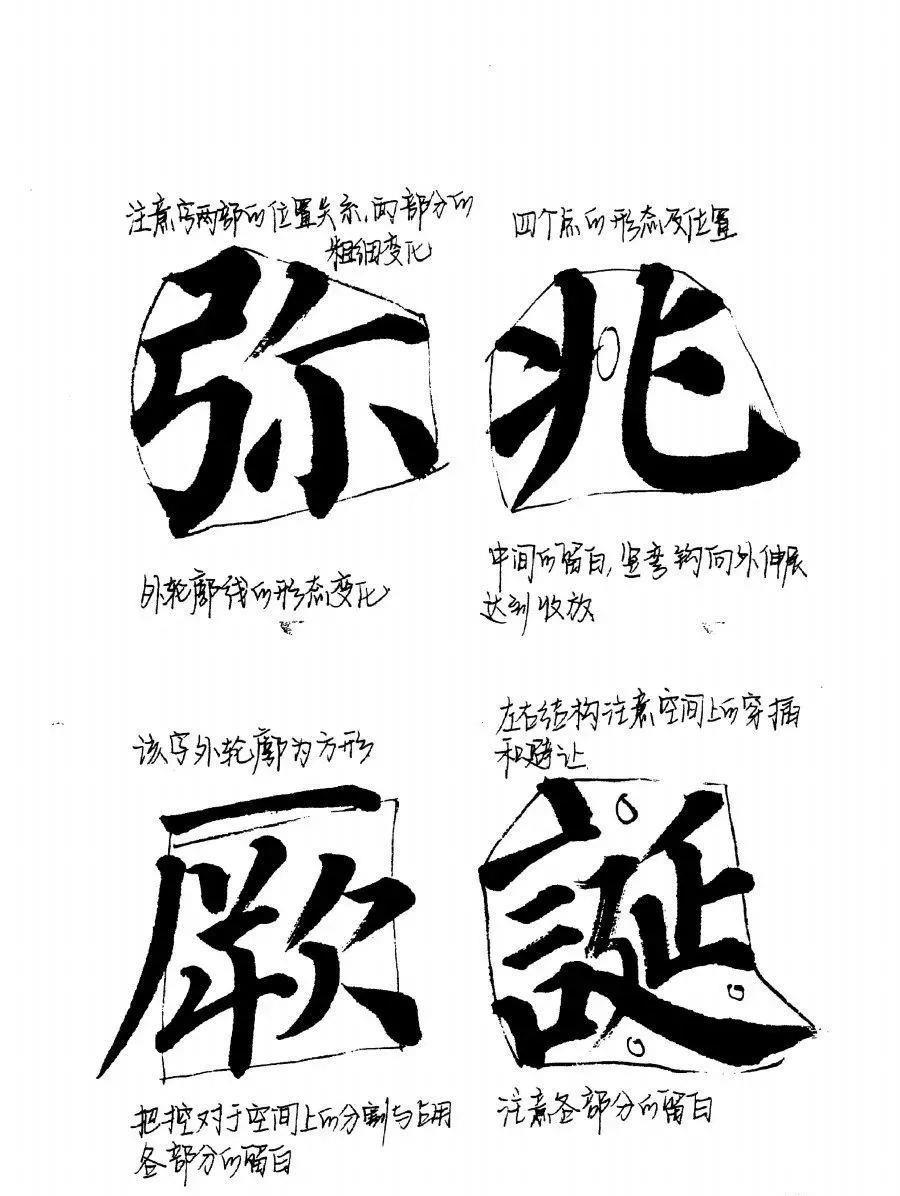 注意字两部的位置关系，两部分的
粗细变化
弥
外轮廓线的形态变化
四个点的形态及位置
兆
中间的留白，竖弯钩向外伸展
达到收放
该字外轮廓为方形
厥
把控对于空间上的分割与占用
各部分的留白
左右结构注意空间上的穿插
和避让
誕
注意各部分的留白